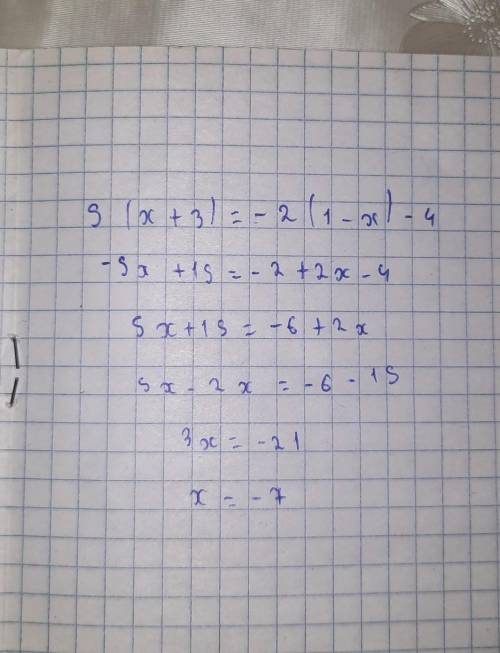 5 (x + 3) = - 2 (1 - x) - 4
-5x + 15 = - 2 + 2x - 4
5x + 15 = -6 + 2x
5x - 2x = -6 - 15
3x = -21
x = -7